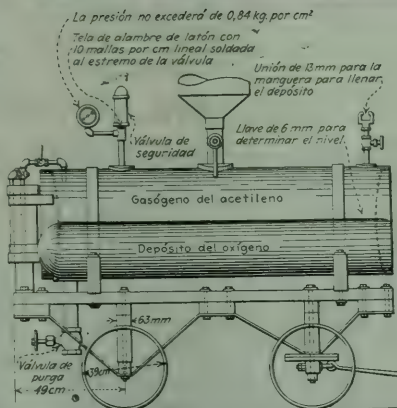 La presión no excederá de 0,84 kg. por cm²
Tela de alambre de latón con
10 mallas por cm lineal soldada
al estremo de la válvula
Unión de 13 mm para la
manguera para llenar
el depósito
Llave de 6 mm para
determinar el nivel
Válvula de
seguridad
Gasógeno del acetileno
Depósito del oxígeno
63mm
39cm
Válvula de
purga
49cm